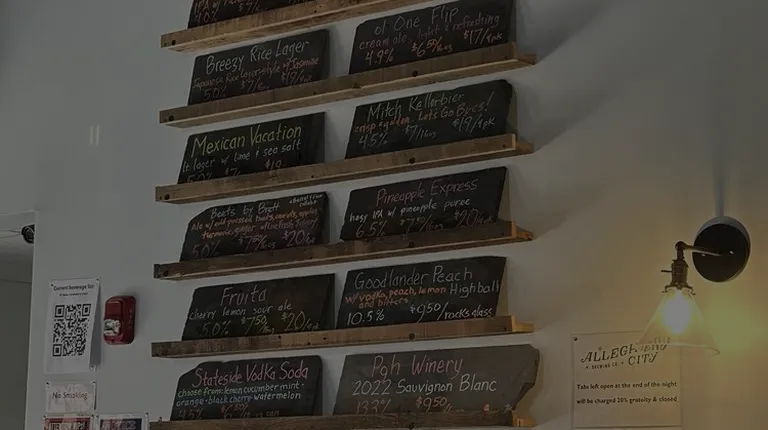 IPA w/
5.0%
ol One Flip
cream ale, light & refreshing
4.9% $6.50/16oz $17/4pk
Breezy Rice Lager
Japanese Rice Lager style w/ Jasmine
5.0% $7/16oz $19/4pk
Mitch Kellerbier
crisp & golden. Let's Go Bucs!
4.5% $7/16oz $19/4pk
Mexican Vacation
lt lager w/ lime & sea salt
5.0% $7 $19
Pineapple Express
hazy IPA w/ pineapple puree
6.5% $20/4pk
Beets by Brett
Ale w/ cold pressed beets, carrots, apples,
turmeric, ginger
5.0% $20/4pk
Goodlander Peach
w/ vodka, peach, lemon Highball
and bitters
10.5% $9.50/rocks glass
Fruita
cherry lemon sour ale
5.0% $20/4pk
Stateside Vodka Soda
choose from: lemon cucumber mint·
orange·black cherry watermelon
Pgh Winery
2022 Sauvignon Blanc
$9.50
Current beverage list
No Smoking
ALLEGHENY
CITY
BREWING CO.
Tabs left open at the end of the night
will be charged 20% gratuity & closed